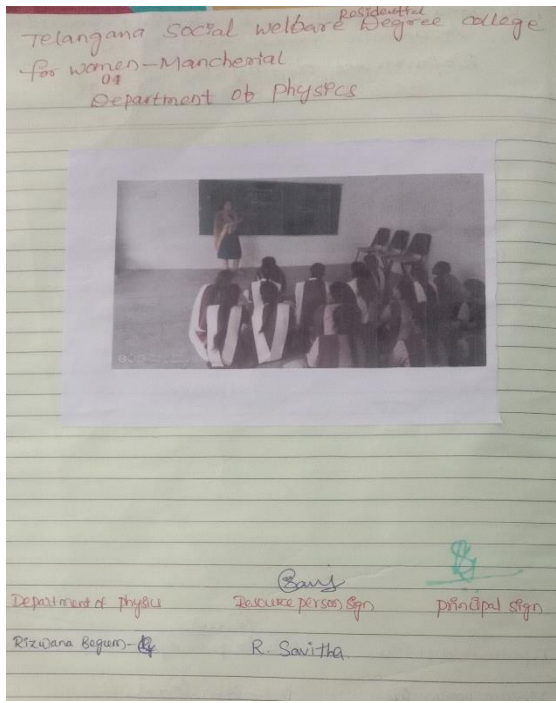 Residential
Telangana Social welbare Degree college
for women-Mancherial
04
Department ob physics
Savi
Department of physics Resource person sign principal sign
Rizwana Begum- R. Savitha